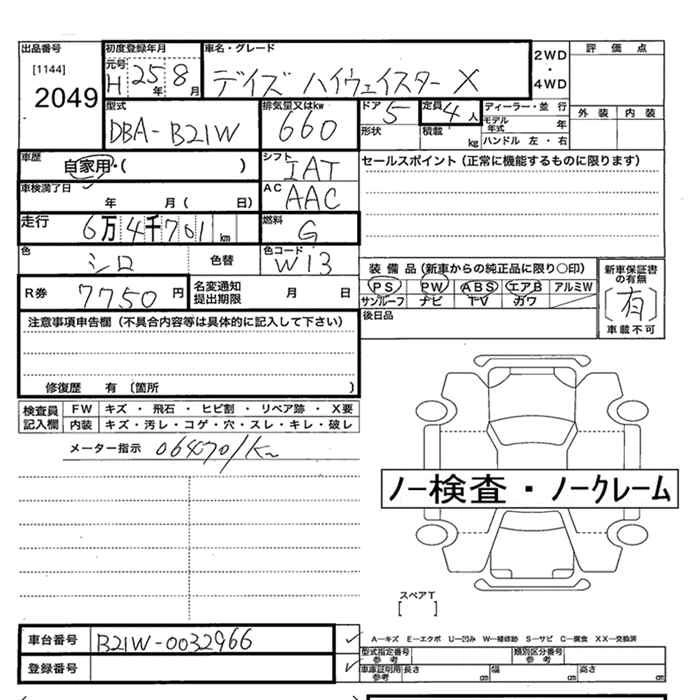 出品番号
[1144]
2049
初度登録年月
元号 H 25年 8月
車名・グレード
デイズ ハイウェイスター X
2WD
・
4WD
評価点
外装 内装
型式
DBA-B21W
排気量又はkw
660
ドア 5
形状
定員 4人
積載 kg
ディーラー・並行
モデル年式 年
ハンドル 左・右
車歴
自家用・( )
シフト
IAT
セールスポイント(正常に機能するものに限ります)
車検満了日
年 月( 日)
AC
AAC
走行
6万4千701km
燃料
G
色
シロ
色替
色コード
W13
R券 7750円
名変通知
提出期限 月 日
装備品(新車からの純正品に限り○印)
PS PW ABS エアB アルミW
サンルーフ ナビ TV カワ
新車保証書
の有無
[有]
車載不可
後日品
注意事項申告欄(不具合内容等は具体的に記入して下さい)
修復歴 有 〔箇所 〕
検査員
記入欄
FW キズ・飛石・ヒビ割・リペア跡・X要
内装 キズ・汚レ・コゲ・穴・スレ・キレ・破レ
メーター指示 064701Km
ノー検査・ノークレーム
スペアT
[ ]
車台番号 B21W-0032966
登録番号
A―キズ E―エクボ U―凹み W―補修跡 S―サビ C―腐食 XX―交換済
型式指定番号
参考
類別区分番号
参考
車庫証明用
参考
長さ cm 幅 cm 高さ cm